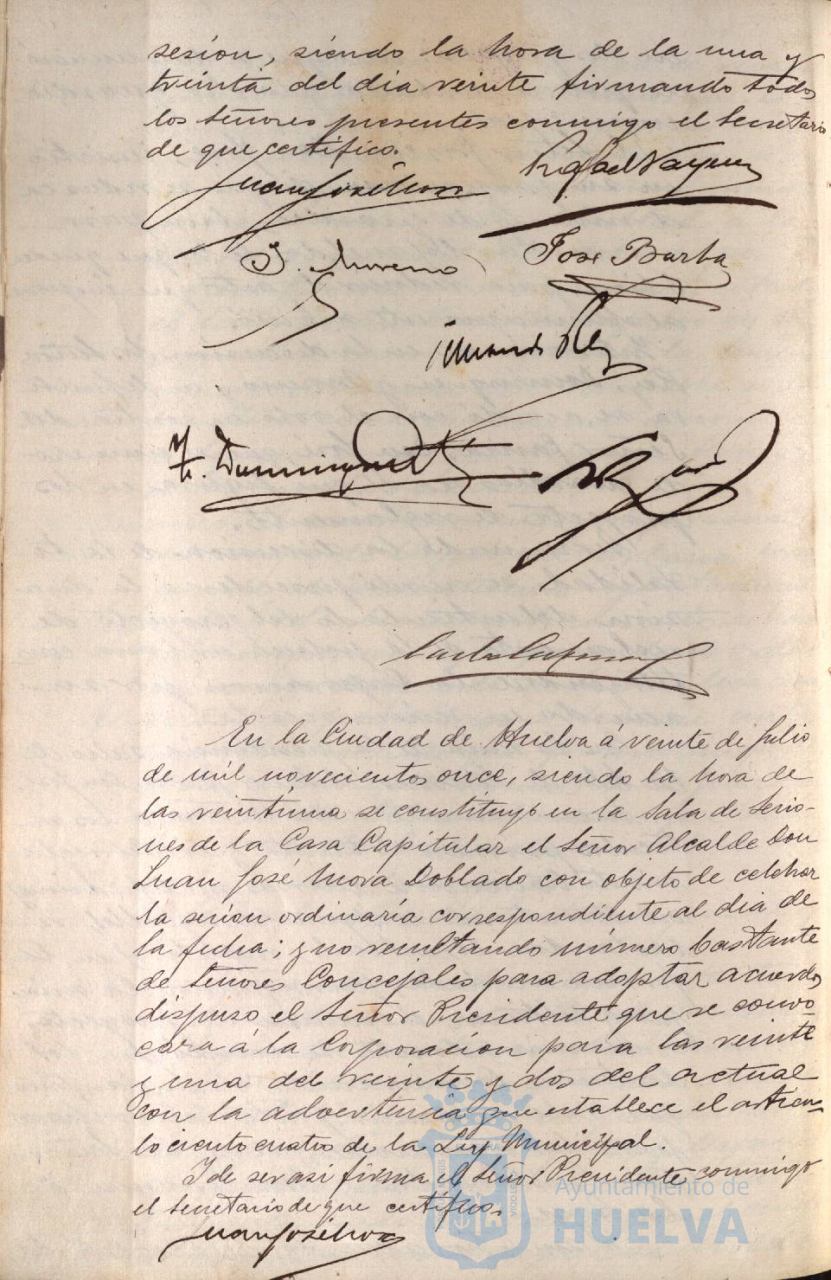 sesion, siendo la hora de la una y
treinta del dia veinte firmando todos
los Señores presentes conmigo el Secretario
de que certifico.
Juan José Mora Rafael Vazquez
J. Moreno José Barba
Rey
F. Dominguez
En la Ciudad de Huelva á veinte de Julio
de mil novecientos once, siendo la hora de
las veintiuna se constituyó en la Sala de Sesio-
nes de la Casa Capitular el Señor Alcalde Don
Juan José Mora Doblado con objeto de celebrar
la sesion ordinaria correspondiente al dia de
la fecha; y no resultando número bastante
de Señores Concejales para adoptar acuerdos
dispuso el Señor Presidente que se convo-
cara á la Corporacion para las veinte
y una del veinte y dos del actual
con la advertencia que establece el articu-
lo ciento cuatro de la Ley Municipal.
I de ser asi firma el Señor Presidente conmigo
el Secretario de que certifico.
Juan José Mora
Ayuntamiento de
HUELVA